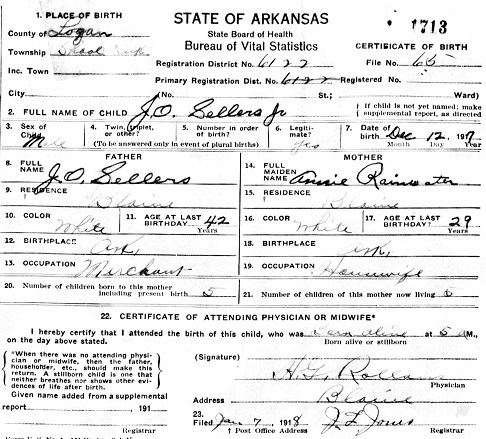 1. PLACE OF BIRTH
County of Logan
Township Shoal Creek
Inc. Town
STATE OF ARKANSAS
State Board of Health
Bureau of Vital Statistics
1713
CERTIFICATE OF BIRTH
Registration District No. 6122 File No. 65
Primary Registration Dist. No. 6122 Registered No.
City No. St.; Ward)
2. FULL NAME OF CHILD J.O. Sellers Jr
If child is not yet named; make supplemental report, as directed
3. Sex of Child Male
4. Twin, triplet, or other?
5. Number in order of birth?
(To be answered only in event of plural births)
6. Legitimate? Yes
7. Date of birth Dec 12, 1917
Month Day Year
FATHER
8. FULL NAME J.O. Sellers
9. RESIDENCE Blaine
10. COLOR White
11. AGE AT LAST BIRTHDAY? 42 Years
12. BIRTHPLACE Ark,
13. OCCUPATION Merchant
MOTHER
14. FULL MAIDEN NAME Annie Rainwater
15. RESIDENCE Blaine
16. COLOR White
17. AGE AT LAST BIRTHDAY? 29 Years
18. BIRTHPLACE Ark,
19. OCCUPATION Housewife
20. Number of children born to this mother including present birth 5
21. Number of children of this mother now living 5
22. CERTIFICATE OF ATTENDING PHYSICIAN OR MIDWIFE*
I hereby certify that I attended the birth of this child, who was Born alive at 5 a M.,
Born alive or stillborn
on the day above stated.
*When there was no attending physician or midwife, then the father, householder, etc., should make this return. A stillborn child is one that neither breathes nor shows other evidences of life after birth.
Given name added from a supplemental
report , 191
Registrar
(Signature)
Physician
Address Blaine
23.
Filed Jan 7, 1918 Registrar
† Post Office Address